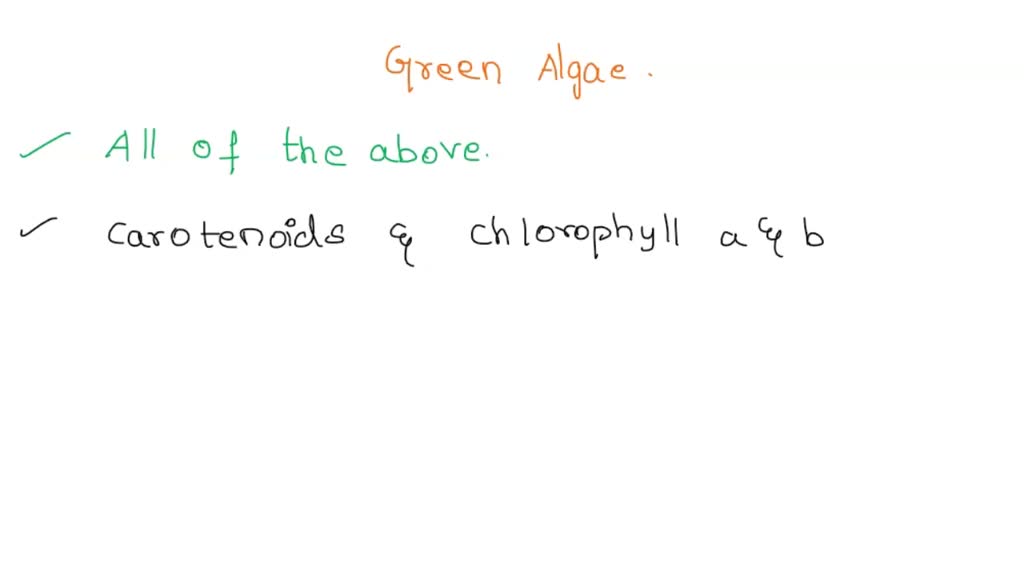 Green Algae.
All of the above.
carotenoids & chlorophyll a & b